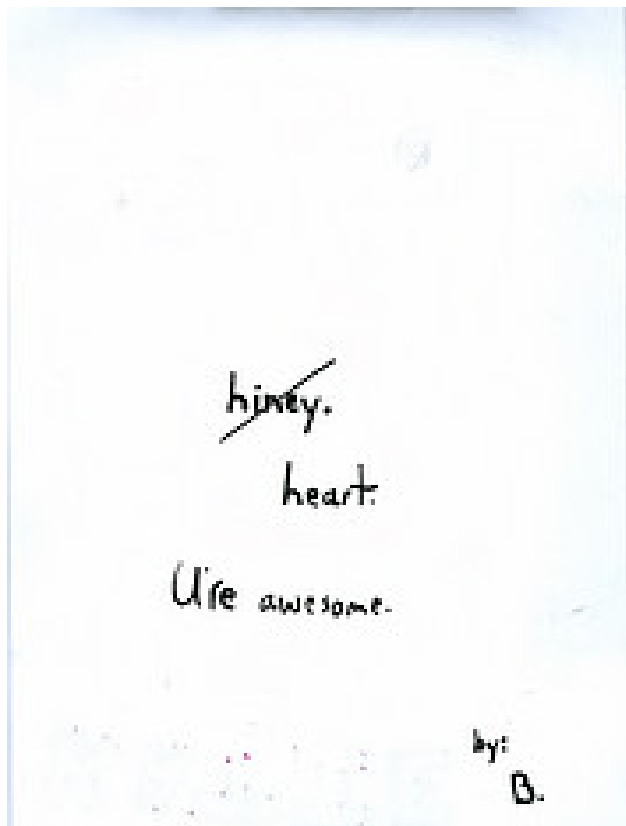 hiney.
heart.
U're awesome.
by:
B.